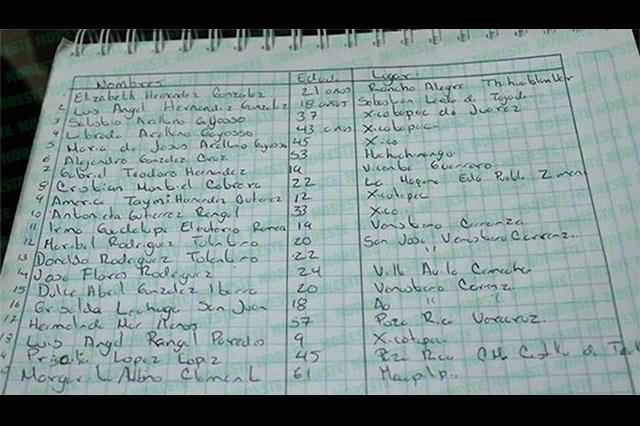 Nombres Edad Lugar
1 Elizabeth Hernandez Gonzalez 21 años Rancho Alegre
2 Luis Angel Hernandez Gonzalez 18 años Sebastian de Tejada
3 Arellano Gayosso 37 Xicotepec de Juarez
4 Librada Arellano Gayosso 43 años Xicotepec
5 Maria de Jesus Arellano Gayosso 45 Xico
6 Alejandro Gonzalez Cruz 53 Huachinango
7 Gabriel Teodoro Hernandez 19 Vicente Guerrero
8 Cristian Cabrera 22 La
9 America Taymi Hernandez Gutierrez 12 Xicotepec
10 Antonieta Gutierrez Rangel 33 Xico
11 Irma Guadalupe Eleuterio 19 Venustiano Carranza
12 Maribel Rodriguez Tolentino 20 San Jose, Venustiano Carranz..
13 Donaldo Rodriguez Tolentino 22 "
14 Jose Flores Rodriguez 24 Villa Avila Camacho
15 Dulce Abril Gonzalez Ibarra 20 Venustiano Carranz.
16 Griselda Lechuga San Juan 18 " "
17 57 Poza Rica Veracruz
Luis Angel Rangel Paredes 9 Xicotepec
Lopez Lopez 45 Poza Rica
61
NORESTE